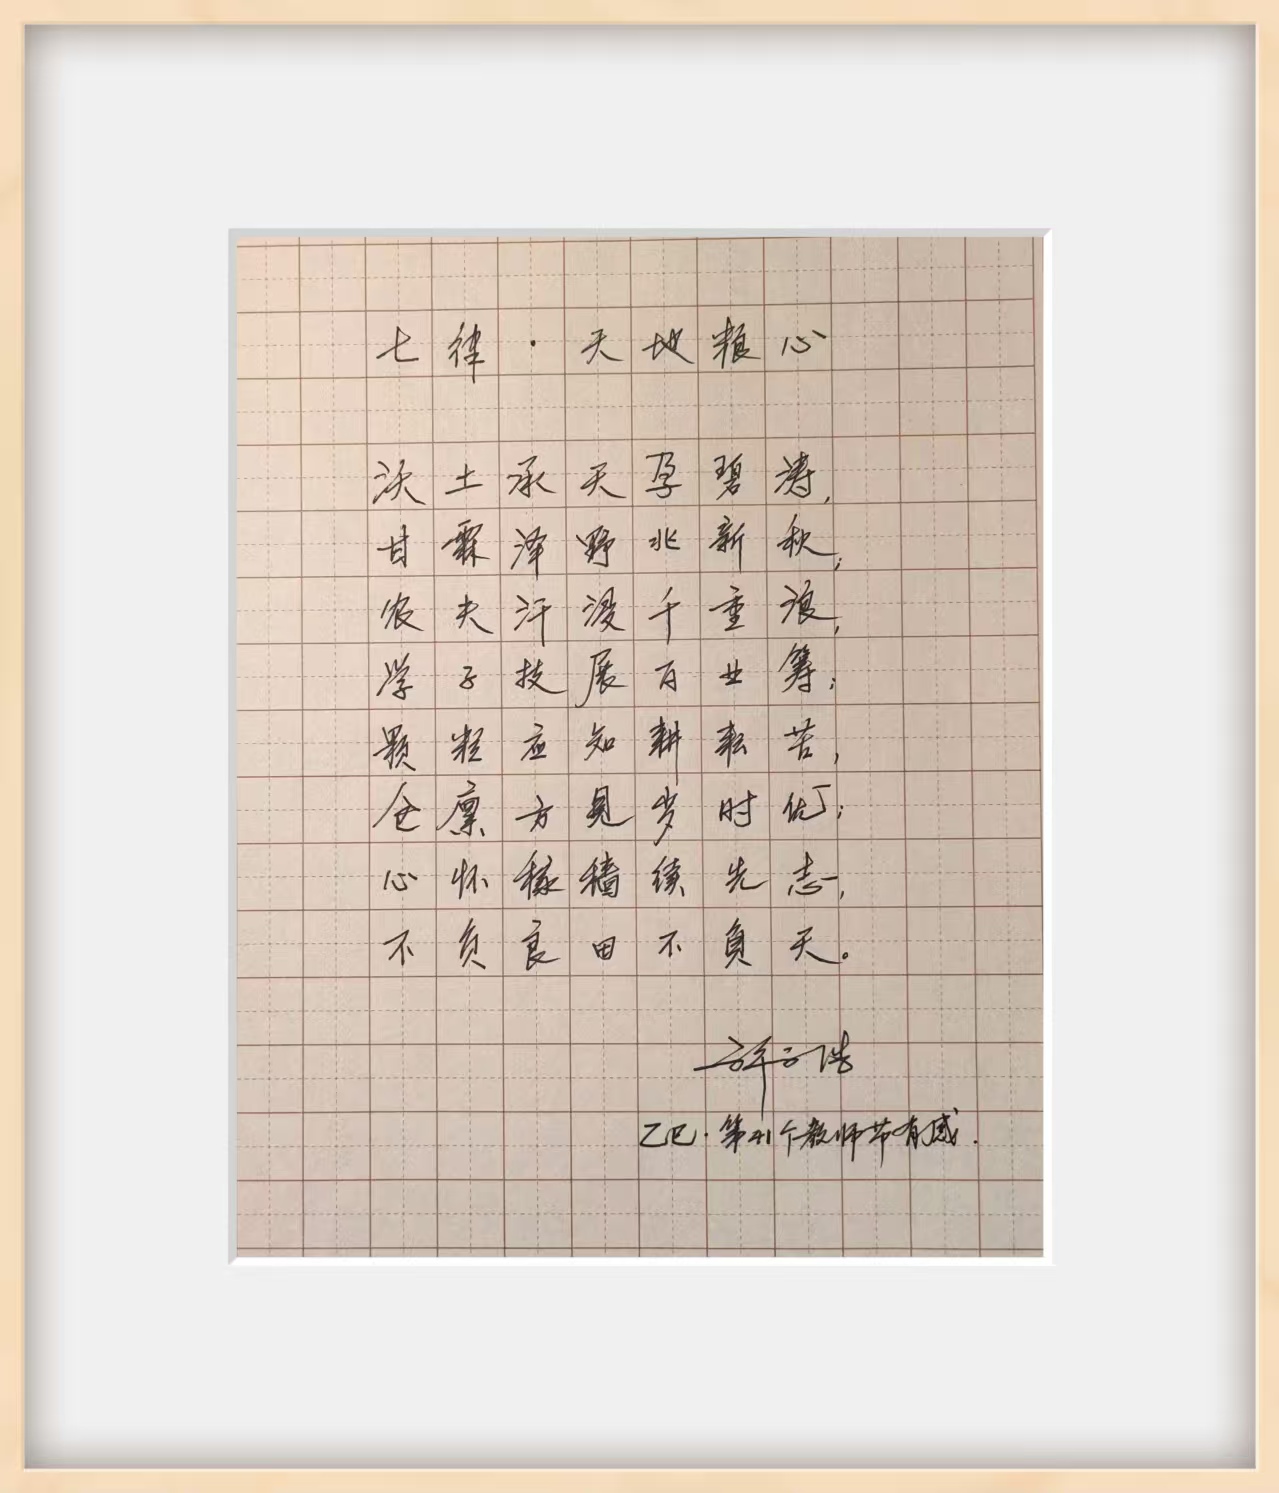 七律·天地粮心
沃土承天孕碧涛，
甘霖泽野兆新秋；
农夫汗浸千重浪，
学子技展百业筹；
颗粒应知耕耘苦，
仓廪方见岁时优；
心怀稼穑续先志，
不负良田不負天。
乙巳·第41个教师节有感.